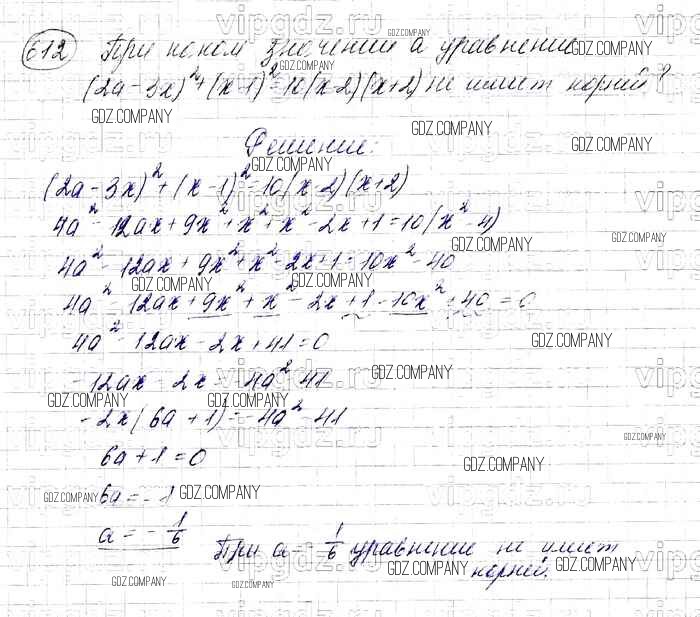 612 При каком значении a уравнение
(2a-3x)²+(x-1)²=10(x-2)(x+2) не имеет корней?
Решение:
(2a-3x)²+(x-1)²=10(x-2)(x+2)
4a²-12ax+9x²+x²+x²-2x+1=10(x²-4)
4a²-12ax+9x²+x²-2x+1=10x²-40
4a²-12ax+9x²+x²-2x+1-10x²+40=0
4a²-12ax-2x+41=0
-12ax-2x=-4a²-41
-2x(6a+1)=-4a²-41
6a+1=0
6a=-1
a=-1/6
При a=-1/6 уравнение не имеет
корней.
vipgdz.ru
GDZ.COMPANY